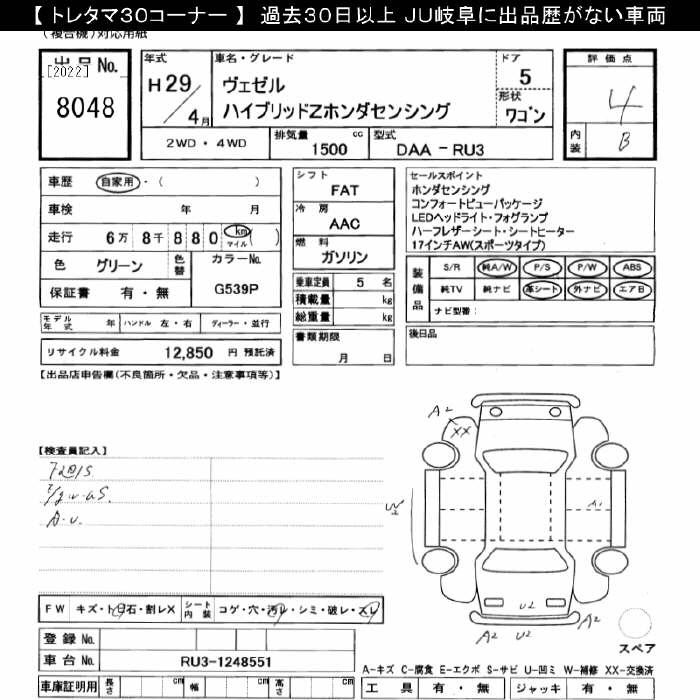 【 トレタマ30コーナー 】 過去30日以上 JU岐阜に出品歴がない車両
(複合機)対応用紙
出品No.
[2022]
8048
年式
H29/4月
車名・グレード
ヴェゼル
ハイブリッドZホンダセンシング
ドア
5
形状
ワゴン
2WD・4WD
排気量 cc
1500
型式
DAA － RU3
評価点
4
内装
B
車歴 自家用・( )
車検 年 月
走行 6万 8千 8 8 0 km マイル ( )
色 グリーン 色替
カラーNo.
G539P
保証書 有・無
モデル年式 年 ハンドル 左・右 ディーラー・並行
リサイクル料金 12,850 円 預託済
シフト
FAT
冷房
AAC
燃料
ガソリン
乗車定員 5 名
積載量 kg
総重量 kg
書類期限
月 日
セールスポイント
ホンダセンシング
コンフォートビューパッケージ
LEDヘッドライト・フォグランプ
ハーフレザーシート・シートヒーター
17インチAW(スポーツタイプ)
装備品
S/R 純A/W P/S P/W ABS
純TV 純ナビ 革シート 外ナビ エアB
ナビ型番:
後日品
【出品店申告欄(不良箇所・欠品・注意事項等)】
【検査員記入】
A・U.
A2
XX
A1
W2
U2
A2
U2
A2
スペア
FW キズ・トビ石・割レX
シート内装 コゲ・穴・汚レ・シミ・破レ・スレ
登録No.
車台No. RU3-1248551
車庫証明用 長さ cm 幅 cm 高さ cm
A-キズ C-腐食 E-エクボ S-サビ U-凹ミ W-補修 XX-交換済
工具 有・無 ジャッキ 有・無